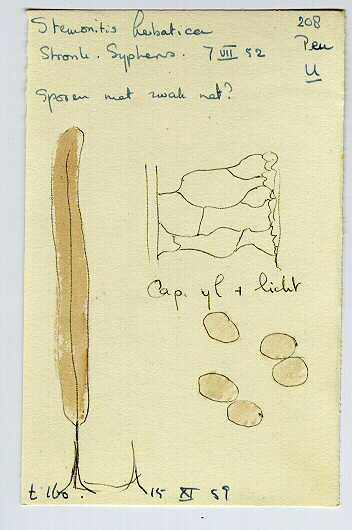 Stemonitis herbatica 208
Stronk. Syphens. 7 VII 52 Peu
U
Sporen met zwak net?
Cap. yl + licht
t 160. 15 XI 59